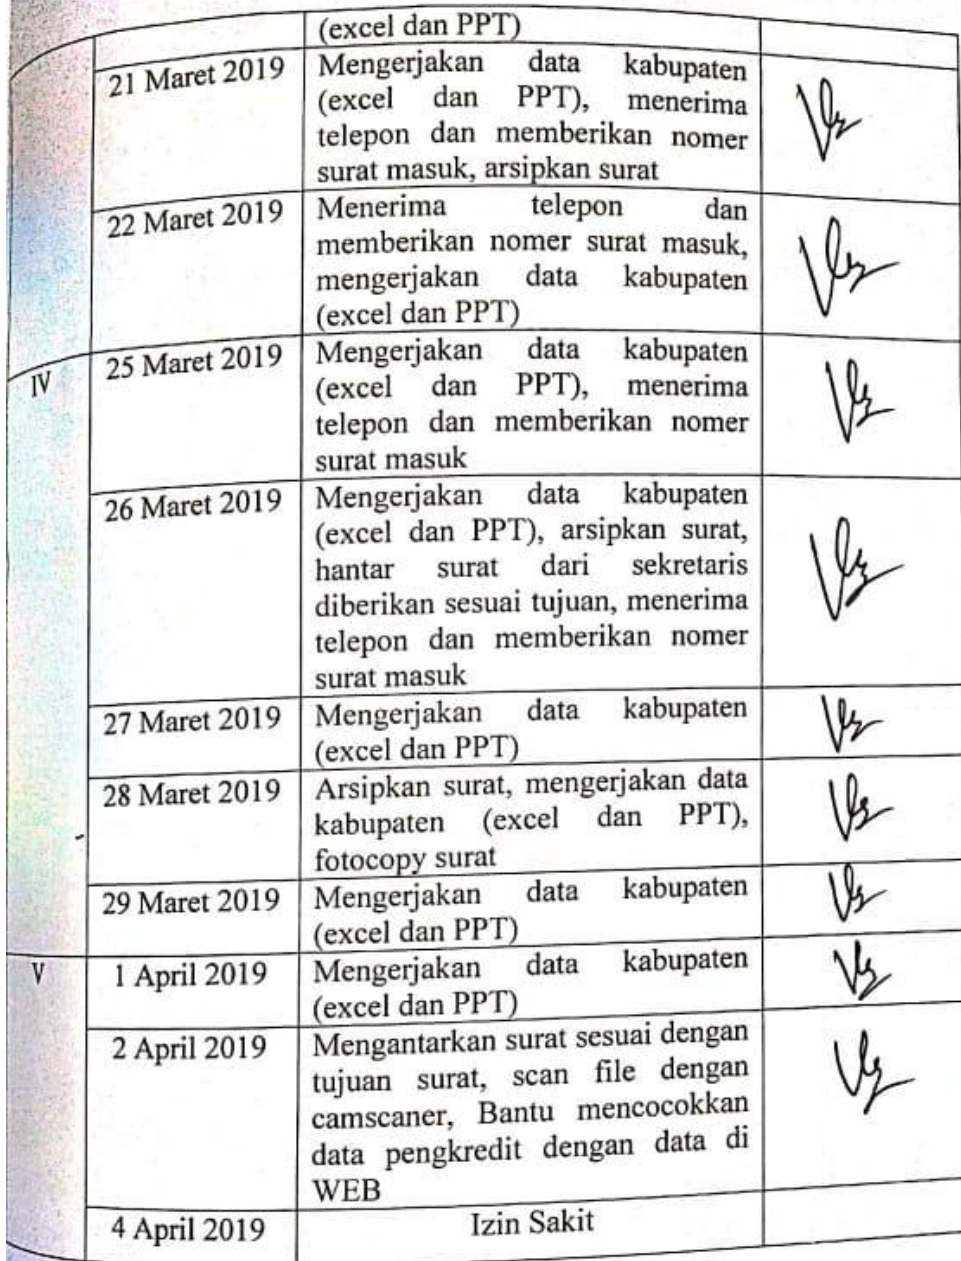 (excel dan PPT)
21 Maret 2019
Mengerjakan data kabupaten
(excel dan PPT), menerima
telepon dan memberikan nomer
surat masuk, arsipkan surat
22 Maret 2019
Menerima telepon dan
memberikan nomer surat masuk,
mengerjakan data kabupaten
(excel dan PPT)
IV
25 Maret 2019
Mengerjakan data kabupaten
(excel dan PPT), menerima
telepon dan memberikan nomer
surat masuk
26 Maret 2019
Mengerjakan data kabupaten
(excel dan PPT), arsipkan surat,
hantar surat dari sekretaris
diberikan sesuai tujuan, menerima
telepon dan memberikan nomer
surat masuk
27 Maret 2019
Mengerjakan data kabupaten
(excel dan PPT)
28 Maret 2019
Arsipkan surat, mengerjakan data
kabupaten (excel dan PPT),
fotocopy surat
29 Maret 2019
Mengerjakan data kabupaten
(excel dan PPT)
V
1 April 2019
Mengerjakan data kabupaten
(excel dan PPT)
2 April 2019
Mengantarkan surat sesuai dengan
tujuan surat, scan file dengan
camscaner, Bantu mencocokkan
data pengkredit dengan data di
WEB
4 April 2019
Izin Sakit